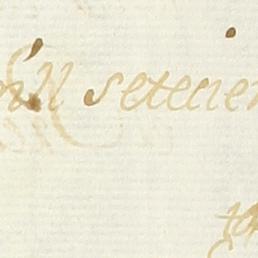 mill setecien